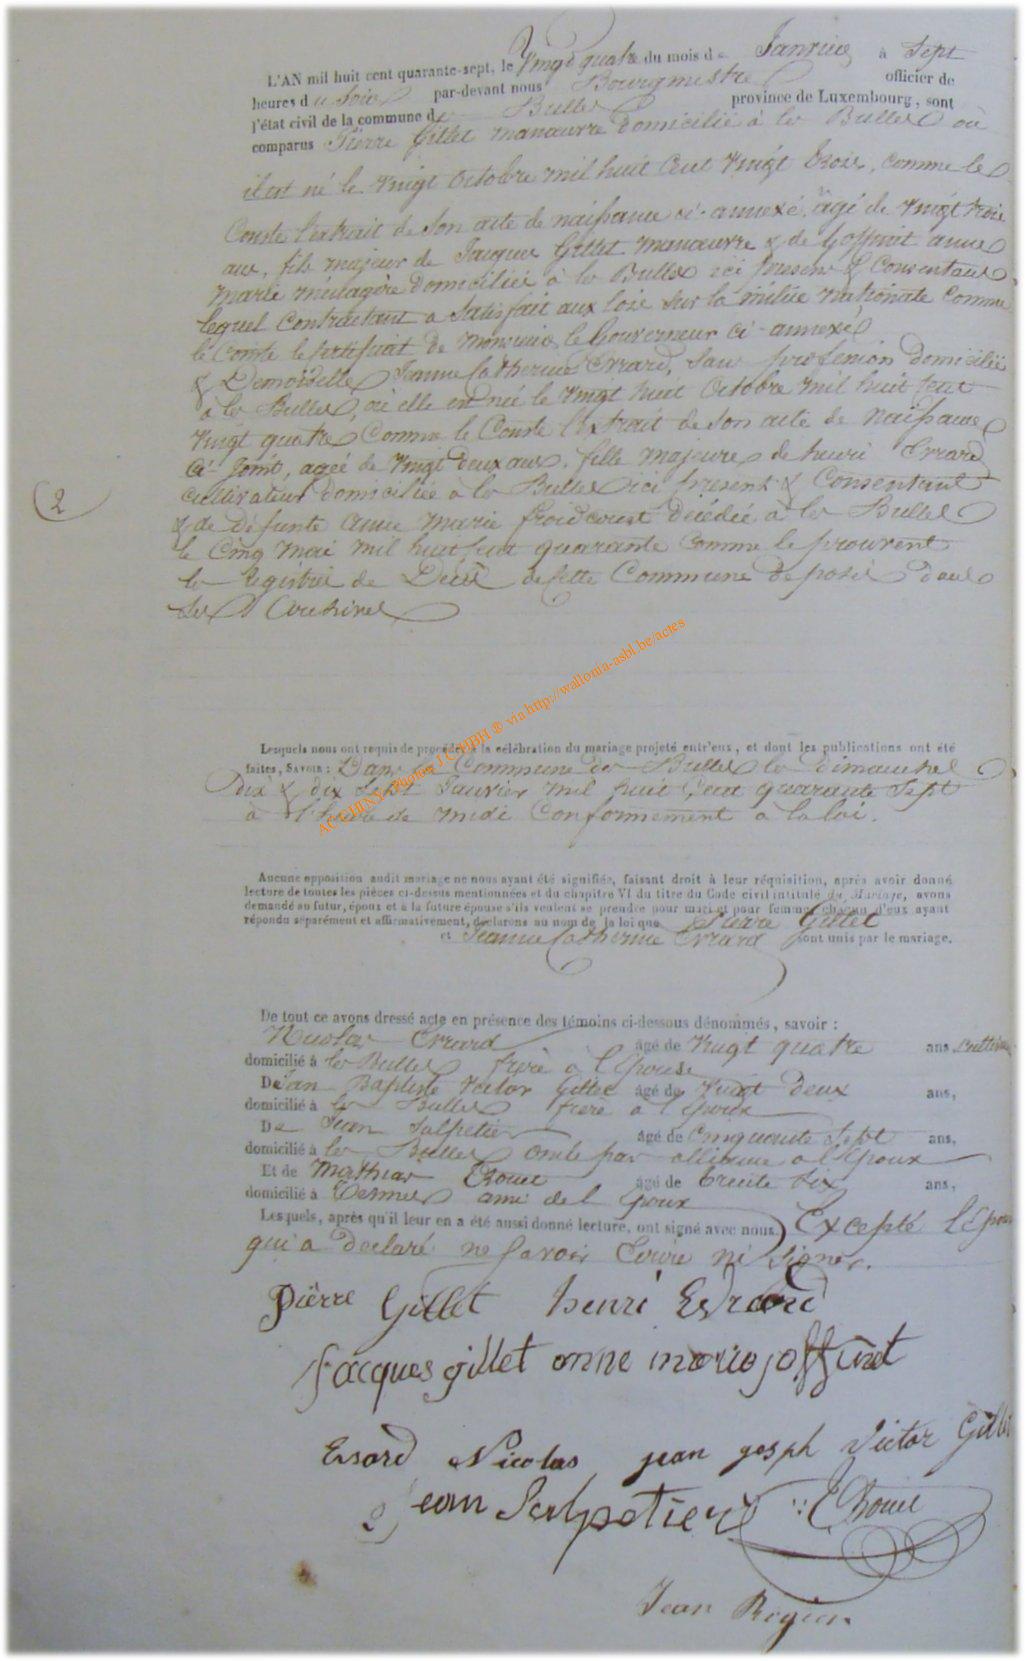 L'AN mil huit cent quarante-sept, le Vingt quatre du mois de Janvier à Sept
heures du Soir par-devant nous Bourgmestre officier de
l'état civil de la commune de Bulles province de Luxembourg, sont
comparus Pierre Gillet manœuvre domicilié à les Bulles où
il est né le vingt Octobre mil huit Cent Vingt trois, comme le
Conste l'extrait de Son acte de naissance ci-annexé, âgé de vingt trois
ans, fils majeur de Jacques Gillet manœuvre & de Goffinet anne
marie ménagère domiciliés à les Bulles ici présens & Consentans
lequel Contractant a Satisfait aux lois Sur la milice nationale comme
le Conste le Certificat de monsieur le Gouverneur ci-annexé
& Demoiselle Jeanne Catherine Errard, Sans profession domiciliée
à les Bulles, où elle est née le vingt huit Octobre mil huit Cent
vingt quatre Comme le Conste l'extrait de son acte de naissance
ci-Joint, agée de vingt deux ans, fille majeure de henri Errard
cultivateur domiciliée à les Bulles ici présent & Consentant
& de défunte Anne marie froidcourt décédée à les Bulles
le Cinq mai mil huit Cent quarante Comme le prouvent
les Registres de Décès de Cette Commune déposés dans
les Archives
2
Lesquels nous ont requis de procéder à la célébration du mariage projeté entr'eux, et dont les publications ont été
faites, SAVOIR : Dans la Commune des Bulles les dimanches
Dix & dix Sept Janvier mil huit Cent quarante Sept
à l'heure de midi Conformement a la loi.
Aucune opposition audit mariage ne nous ayant été signifiée, faisant droit à leur réquisition, après avoir donné
lecture de toutes les pièces ci-dessus mentionnées et du chapitre VI du titre du Code civil intitulé du Mariage, avons
demandé au futur, époux et à la future épouse s'ils veulent se prendre pour mari et pour femme, chacun d'eux ayant
répondu séparément et affirmativement, déclarons au nom de la loi que Pierre Gillet
et Jeanne Catherine Errard sont unis par le mariage.
De tout ce avons dressé acte en présence des témoins ci-dessous dénommés, savoir :
Nicolas Errard âgé de Vingt quatre ans
domicilié à les Bulles frère à l'Epouse
De Jean Baptiste Victor Gillet âgé de Vingt deux ans,
domicilié à les Bulles frère à l'Epoux
De Jean Salpetier âgé de Cinquante Sept ans,
domicilié à les Bulles oncle par alliance a l'Epoux
Et de Mathias âgé de trente Six ans,
domicilié à Termes ami de l Epoux
Lesquels, après qu'il leur en a été aussi donné lecture, ont signé avec nous. Excepté l'Epouse
qui a déclaré ne Savoir Ecrire ni Signer.
pierre Gillet henri Errard
Jacques gillet anne marie joffinet
Errard Nicolas jean joseph Victor Gillet
Jean Salpetier
Jean
AC CHINY Photos J.C.HBH ® via http://wallonia-asbl.be/actes